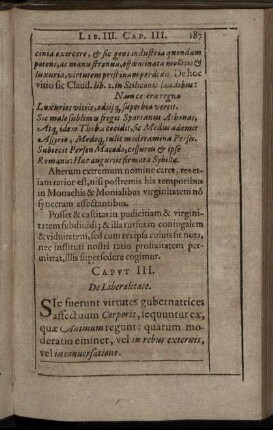 LIB. III. CAP. III. 187
cinia exercere, & sic gens industria quondam
potens, ac manu strenua, effœminata mollitie &
luxuria, virtutem pristinam perdidit. De hoc
vitio sic Claud. lib. 1. in Stiliconis laudibus:
Nam cetera regna
Luxuries vitiis, odiisq, superbia vertit.
Sic male sublimes fregit Spartanus Athenas,
Atq, idem Thebis cecidit, sic Medus ademit
Assyrio, Medoq, tulit moderamina Perses.
Subiecit Persen Macedo, cessurus & ipse
Romanis: Hæc auguriis firmata Sibyllæ.
Alterum extremum nomine caret, rev
etiam rarior est, nisi postremis his temporibus
in Monachis & Monialibus virginitatem nō
synceram affectantibus.
Posset & castitas in pudicitiam & virgini-
tatem subdividi; & illa rursus in conjugalem
& viduitatem, sed cum reipsa cuivis sit nota,
nec instituti nostri ratio prolixitatem per-
mittat, illis supersedere cogimur.
CAPVT III.
De Liberalitate.
SIc fuerunt virtutes gubernatrices
affectuum Corporis, sequuntur ex,
quæ Animum regunt: quarum mo-
deratio eminet, vel in rebus externis,
vel in conversatione.